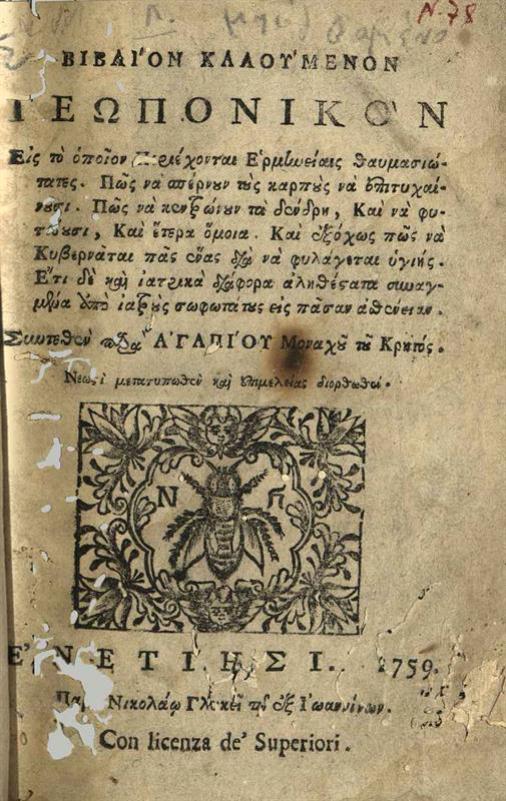 Ν. 78
ΒΙΒΛΙ'ΟΝ ΚΑΛΟΥ'ΜΕΝΟΝ
ΓΕΩΠΟΝΙΚΟ'Ν
Εἰς τὸ ὁποῖον Περιέχονται Ἑρμηνείαις θαυμασιώ-
τατες. Πῶς νὰ σπέρνουν τοὺς καρποὺς νὰ ἐπιτυχαί-
νουσι. Πῶς νὰ κεντρώνουν τὰ δένδρη, Καὶ νὰ φυ-
τεύουσι, Καὶ ἕτερα ὅμοια. Καὶ ἐξόχως πῶς νὰ
Κυβερνᾶται πᾶς ἕνας διὰ νὰ φυλάγεται ὑγιής.
Ἔτι δὲ καὶ ἰατρικὰ διάφορα ἀληθέστατα συναγ-
μένα ὑπὸ ἰατροὺς σοφωτάτους εἰς πᾶσαν ἀσθένειαν.
Συντεθὲν παρὰ Α'ΓΑΠΙ'ΟΥ Μοναχοῦ τοῦ Κρητός.
Νεωςὶ μετατυπωθὲν καὶ ἐπιμελείας διορθωθέν.
Ν Γ
Ε'ΝΕΤΙΗΣΙ. 1759.
Παρὰ Νικολάῳ Γλυκεῖ τῷ ἐξ Ἰωαννίνων.
Con licenza de' Superiori.